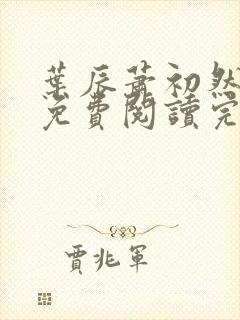 葉辰蕭初然
免費閱讀完
賈兆軍